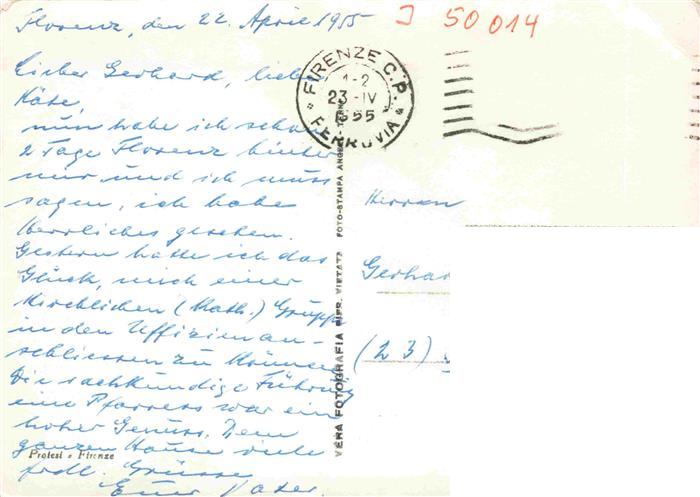 Florenz, den 22. April 1955
J 50014
Lieber Gerhard, liebe
Käte,
nun habe ich schon
2 Tage Florenz hinter
mir und ich muss
sagen, ich habe
Herrliches gesehen.
Gestern hatte ich das
Glück, mich einer
kirchlichen (kath.) Gruppe
in den Uffizien an-
schliessen zu können.
Die sachkundige Führung
eines Pfarrers war ein
hoher Genuss. Dem
ganzen Hause viele
frdl. Grüsse
Euer Vater.
Protesi - Firenze
FIRENZE C.P.
1-2
23-IV
1955
FERROVIA
VERA FOTOGRAFIA RIPR. VIETATA FOTO-STAMPA
Herrn
Gerhar
(23)